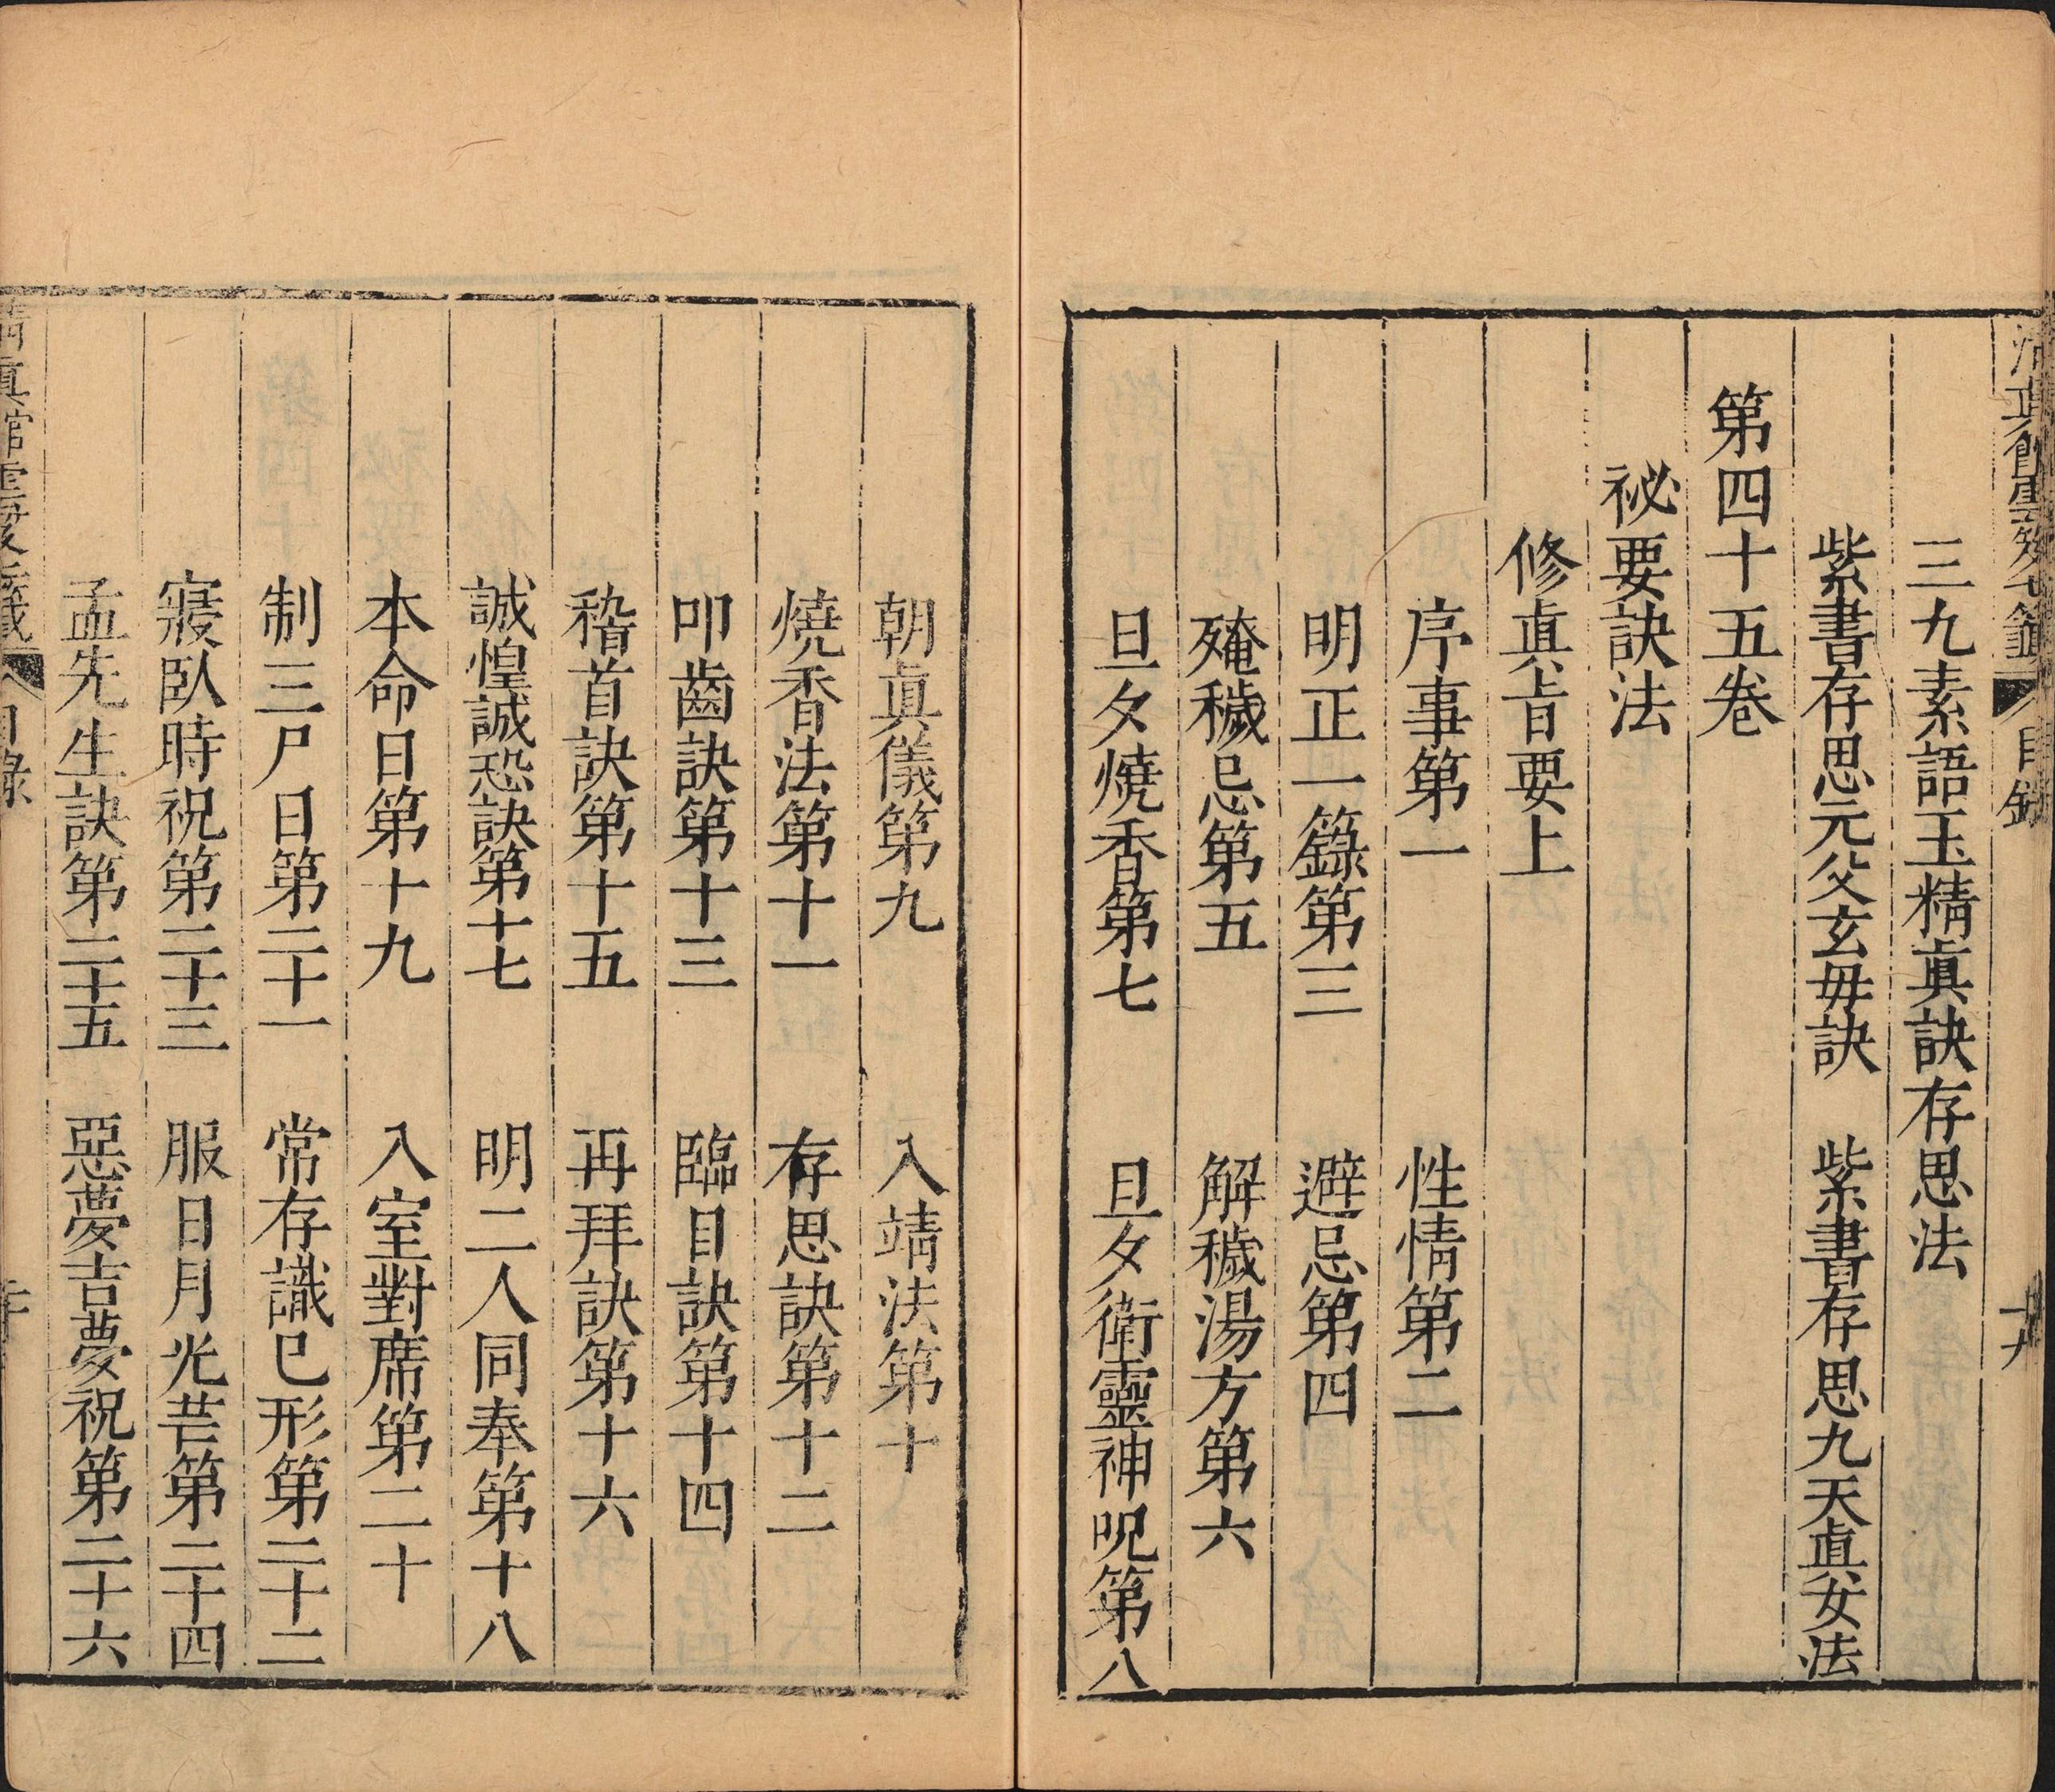 清眞館雲笈七籤 目錄 十九
三九素語玉精眞訣存思法
紫書存思元父玄毋訣 紫書存思九天眞女法
第四十五卷
祕要訣法
修眞㫖要上
序事第一 性情第二
明正一籙第三 避忌第四
殗穢忌第五 解穢湯方第六
旦夕燒香第七 旦夕衛靈神呪第八
朝眞儀第九 入靖法第十
燒香法第十一 存思訣第十二
叩齒訣第十三 臨目訣第十四
稽首訣第十五 再拜訣第十六
誠惶誠恐訣第十七 明二人同奉第十八
本命日第十九 入室對席第二十
制三尸日第二十一 常存識已形第二十二
寢臥時祝第二十三 服日月光芒第二十四
孟先生訣第二十五 惡夢吉夢祝第二十六
清眞館雲笈七籤 目錄